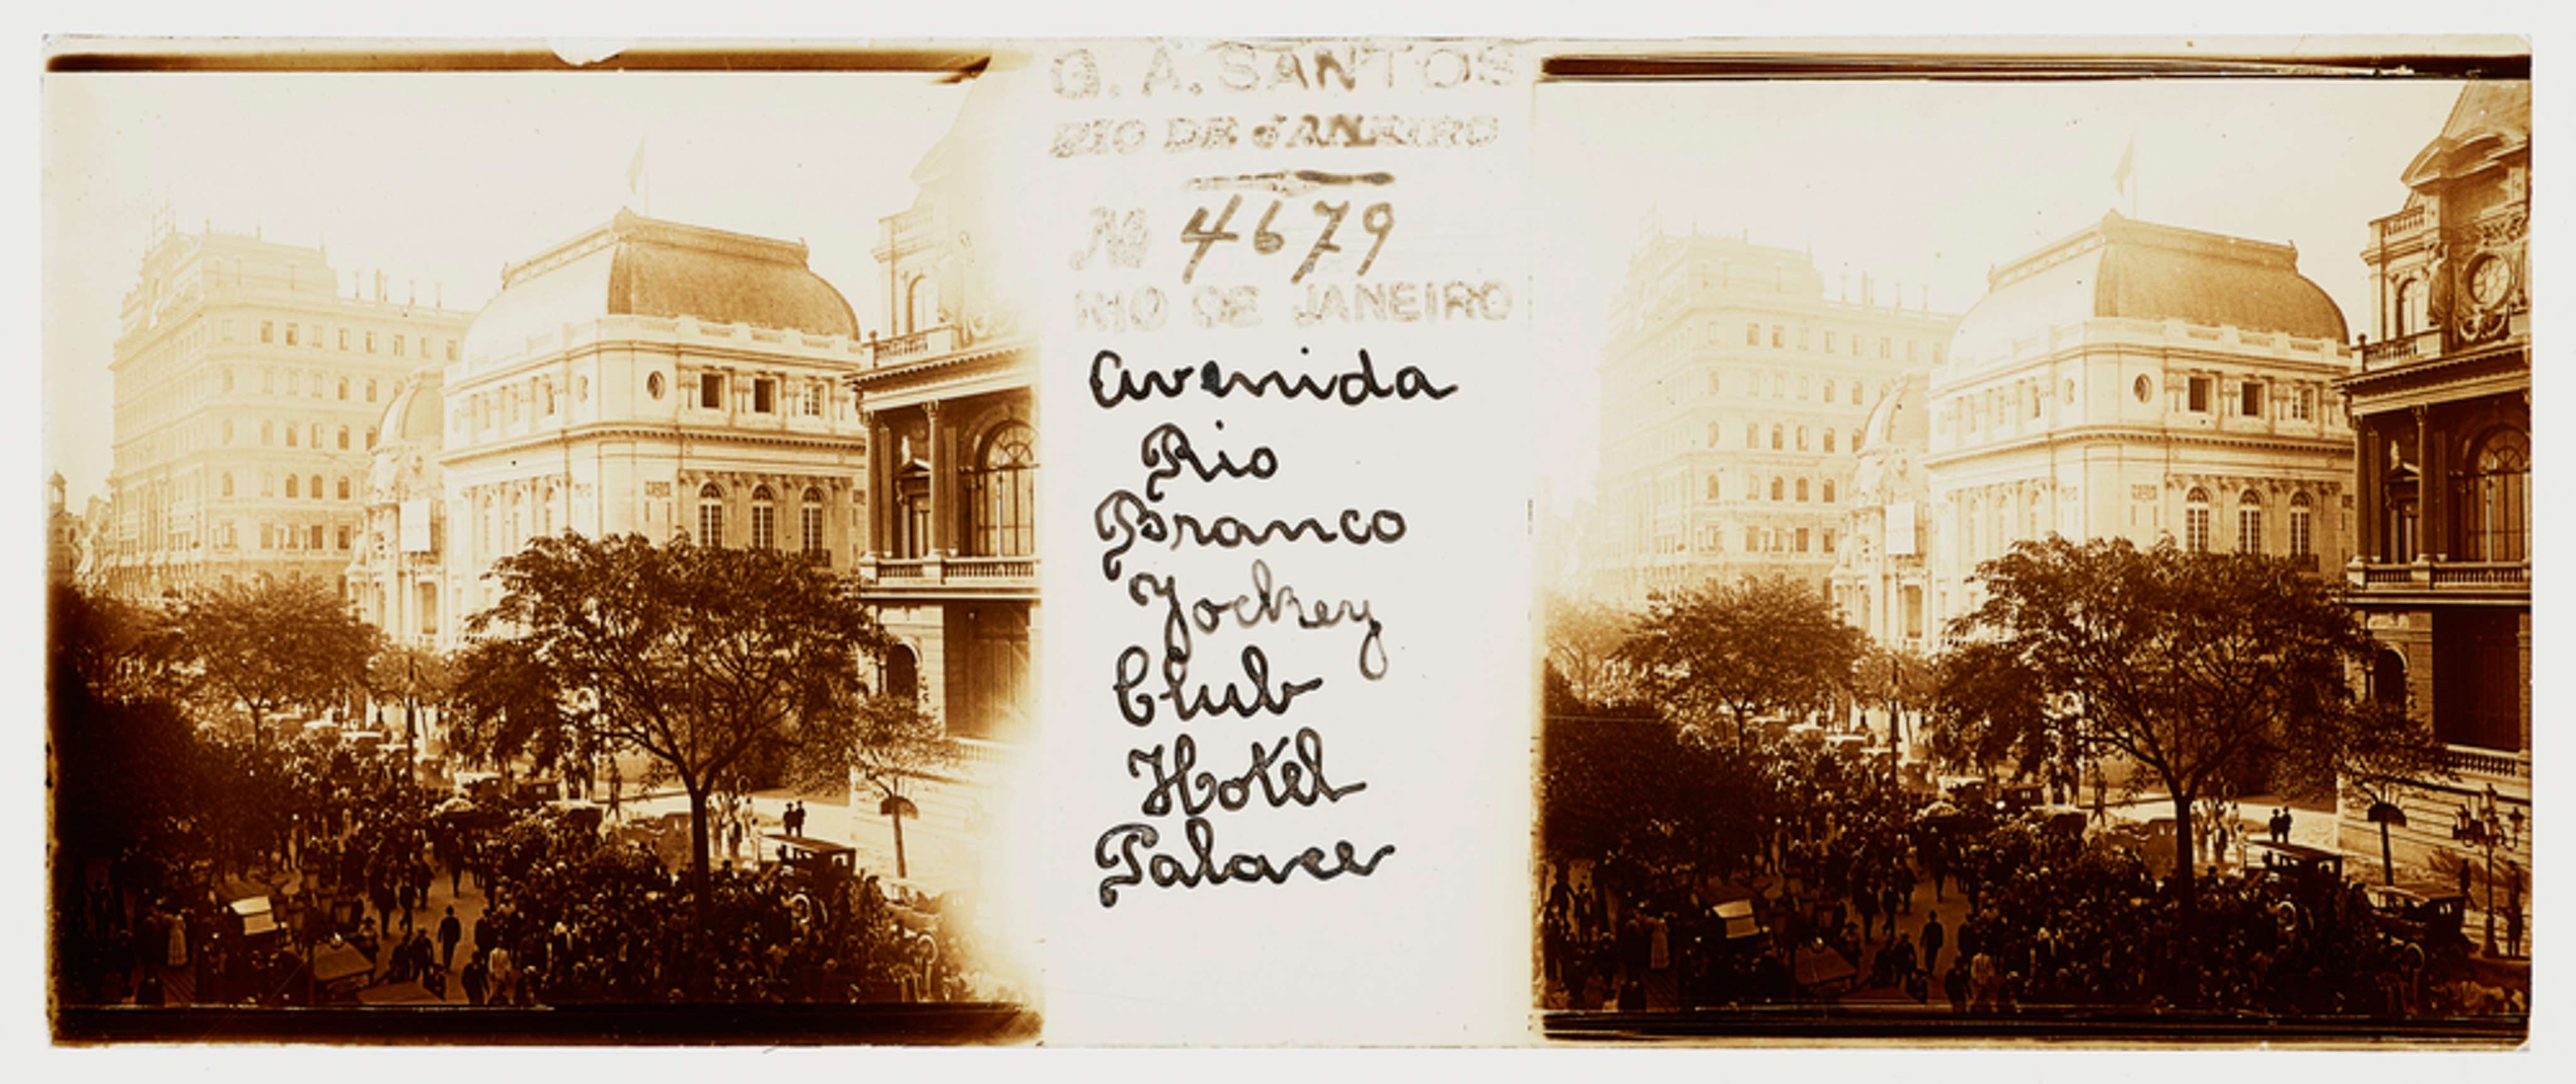 G. A. SANTOS
RIO DE JANEIRO
Nº 4679
RIO DE JANEIRO
Avenida
Rio
Branco
Jockey
Club
Hotel
Palace